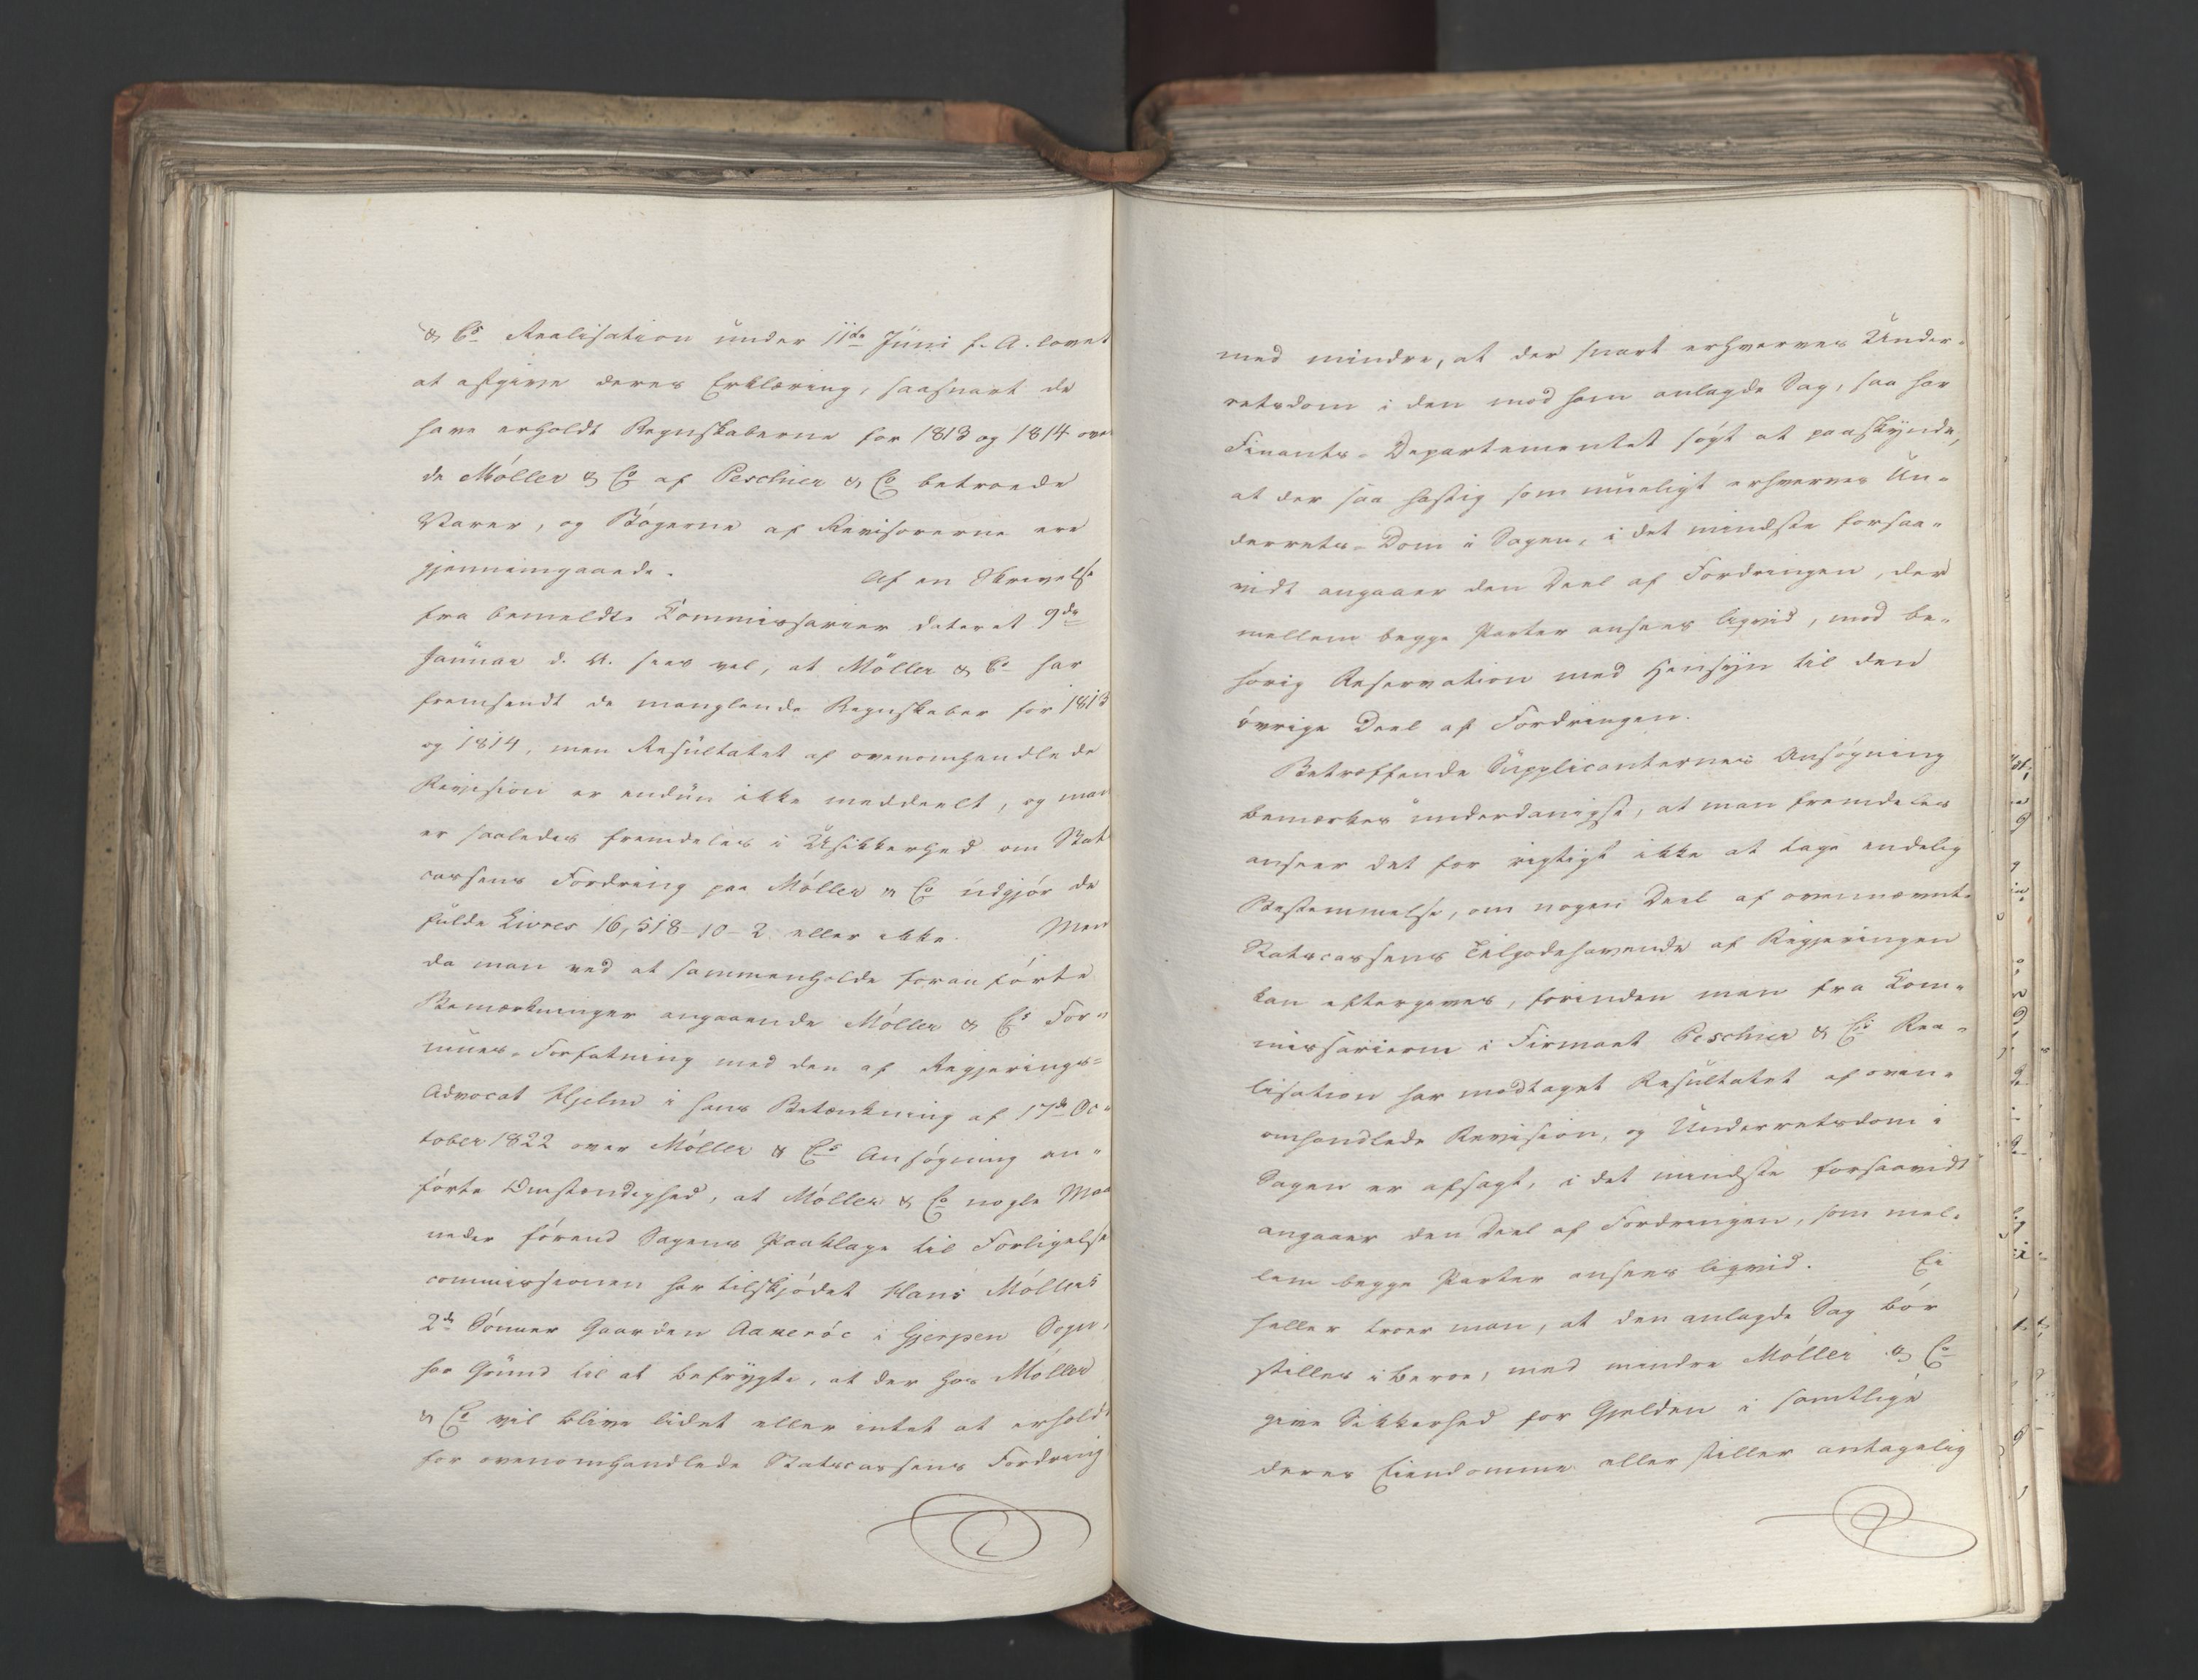 & Cs Realisation under 11te Juni f. A. lovet
at afgive deres Erklæring, saasnart de
have erholdt Regnskaberne for 1813 og 1814 over
de Møller & Co af Peschier & Co betroede
Varer, og Bøgerne af Revisorerne ere
gjennemgaaede. Af en Skrivelse
fra bemeldte Commissarier dateret 9de
Januar d. A. sees vel, at Møller & Co har
fremsendt de manglende Regnskaber for 1813
og 1814, men Resultatet af ovenomhandlede
Revision er endnu ikke meddeelt, og man
er saaledes fremdeles i Usikkerhed om Stats
cassens Fordring paa Møller & Co udgjør de
fulde Livres 16,518-10-2 eller ikke. Men
da man ved at sammenholde foranførte
Bemærkninger angaaende Møller & Cs For-
mues-Forfatning med den af Regjerings-
Advocat Hjelm i hans Betænkning af 17de Oc-
tober 1822 over Møller & Cs Ansøgning an-
førte Omstændighed, at Møller & Co nogle Maa
neder førend Sagens Paaklage til Forligelses
commissionen har tilskjødet Hans Møllers
2de Sønner Gaarden Aakeröe i Gjerpen Sogn,
har Grund til at befrygte, at der hos Møller
& Co vil blive lidet eller intet at erholde
for ovenomhandlede Statscassens Fordring
med mindre, at der snart erhverves Under-
retsdom i den mod ham anlagde Sag, saa har
Finants-Departementet søgt at paaskynde,
at der saa hastig som mueligt erhverves Un-
derrets-Dom i Sagen, i det mindste forsaa-
vidt angaaer den Deel af Fordringen, der
mellem begge Parter ansees liqvid, med be-
hørig Reservation med Hensyn til den
øvrige Deel af Fordringen.
Betræffende Supplicanternes Ansøgning
bemærkes underdanigst, at man fremdeles
anseer det for rigtigst ikke at tage endelig
Bestemmelse, om nogen Deel af ovennævnte
Statscassens Tilgodehavende af Regjeringen
kan eftergives, forinden man fra Com-
missarierne i Firmaet Peschier & Cs Rea-
lisation har modtaget Resultatet af oven-
omhandlede Revision, og Underretsdom i
Sagen er afsagt, i det mindste forsaavidt
angaaer den Deel af Fordringen, som mel-
lem begge Parter ansees liqvid. Ei
heller troer man, at den anlagde Sag bør
stilles i Beroe, med mindre Møller & Co
give Sikkerhed for Gjelden i samtlige
deres Eiendomme eller stiller antagelig